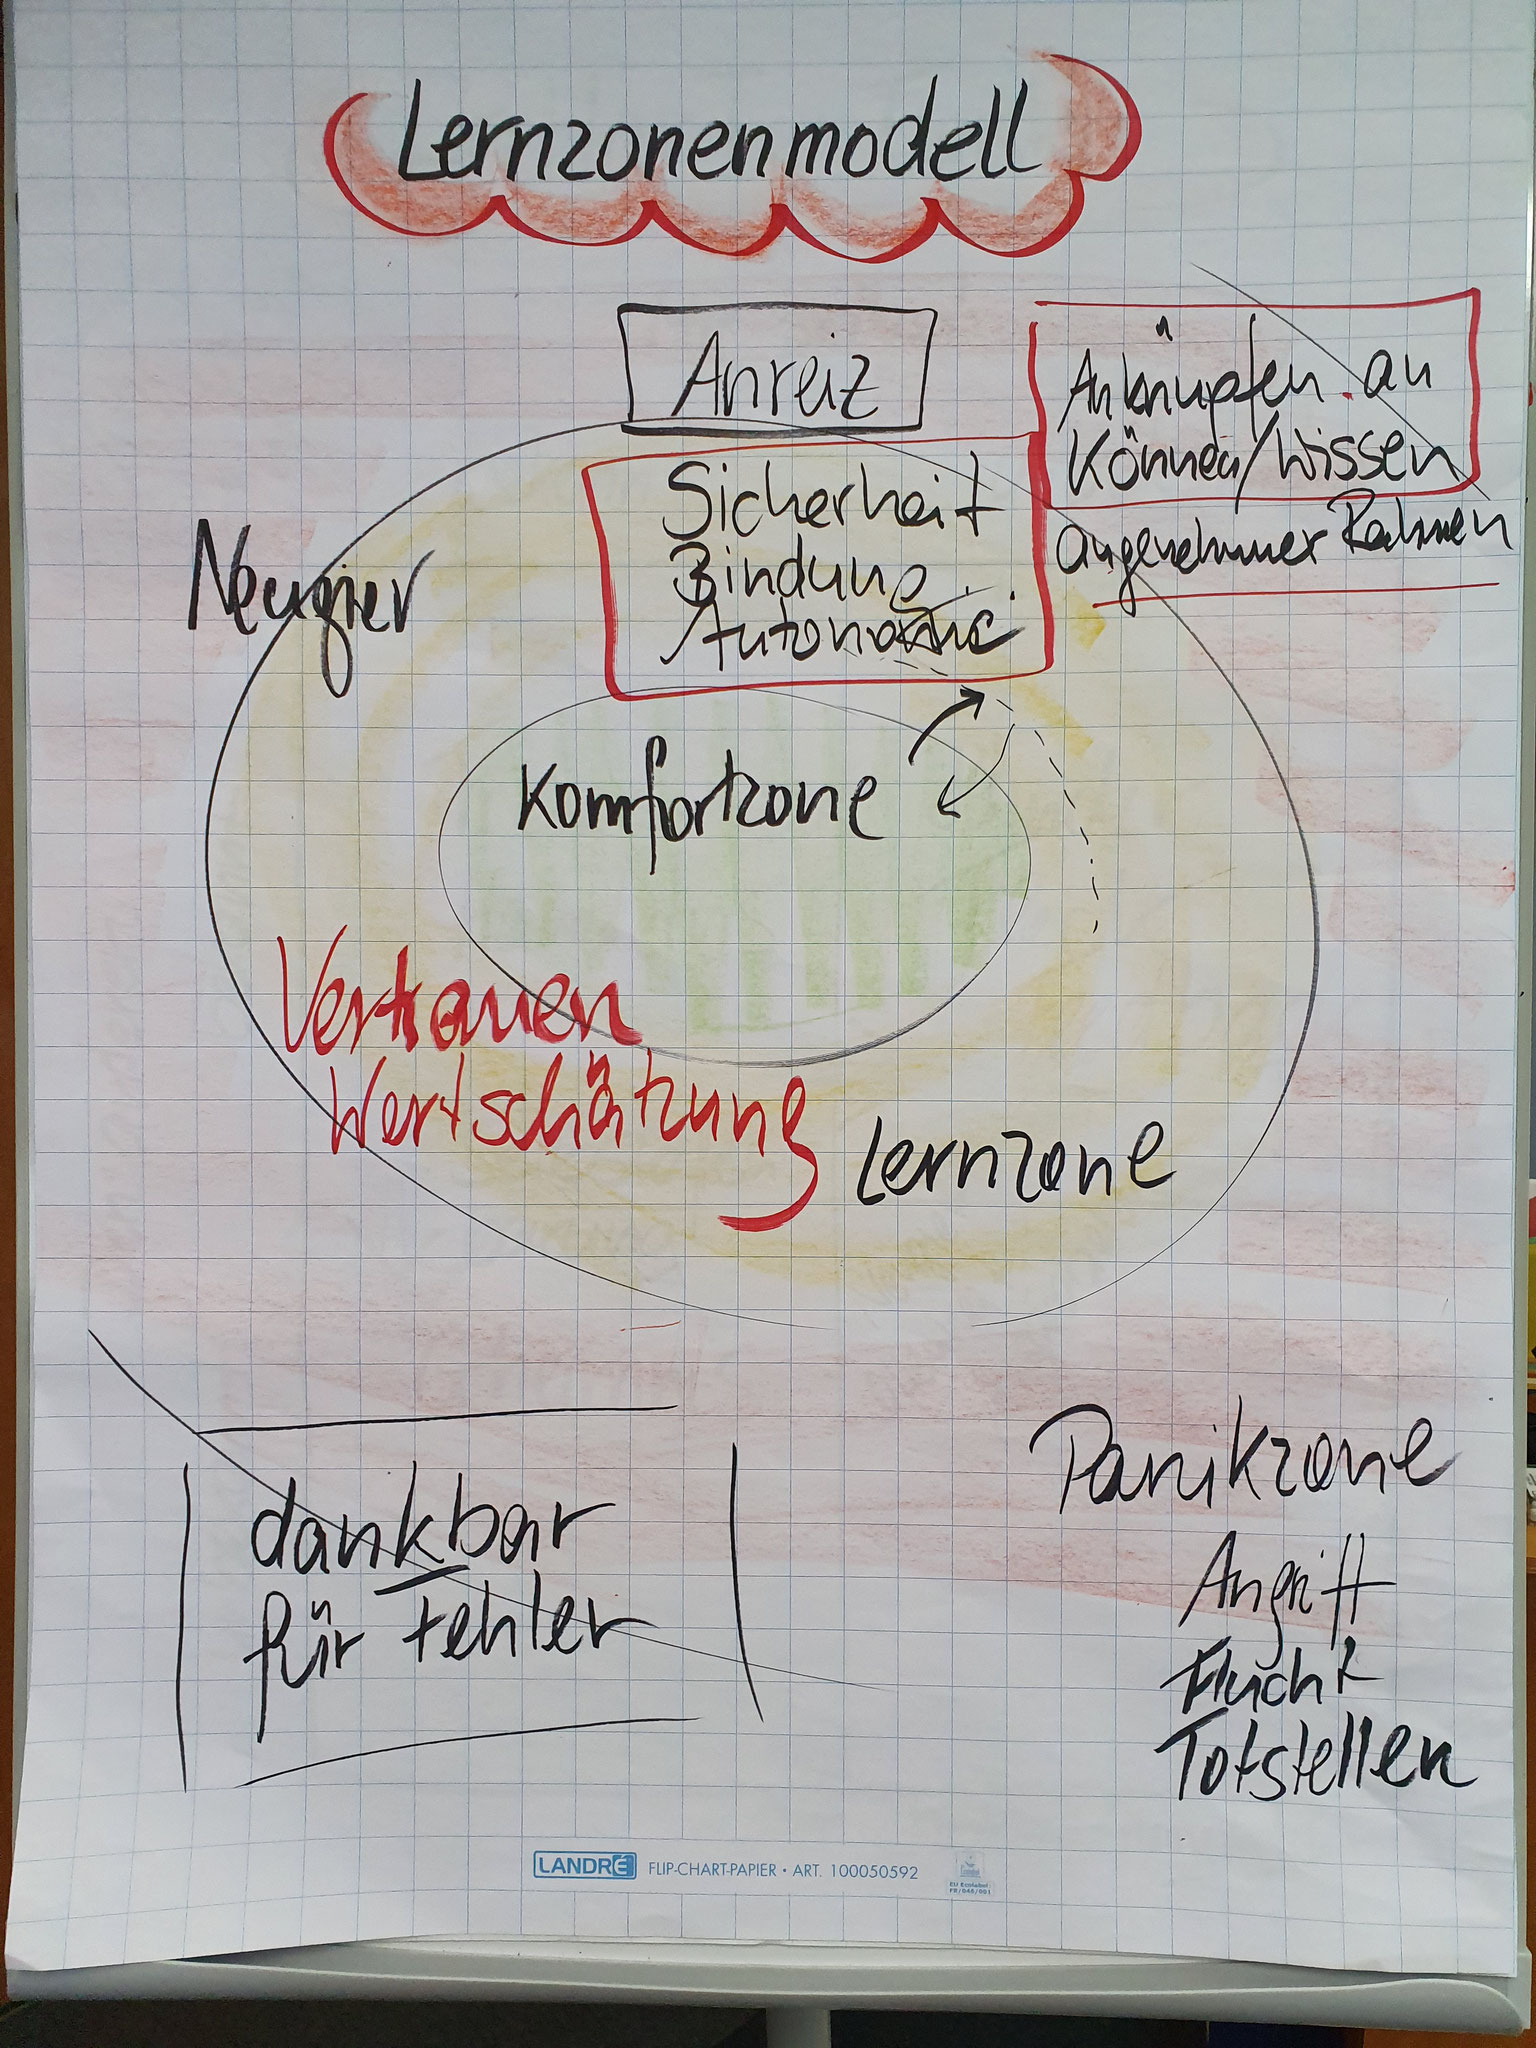 Lernzonenmodell
Anreiz
Anknüpfen an
Können/Wissen
angenehmer Rahmen
Sicherheit
Bindung
Autonomie
Neugier
Komfortzone
Vertrauen
Wertschätzung
Lernzone
Panikzone
Angriff
Flucht
Totstellen
dankbar
für Fehler
LANDRÉ FLIP-CHART-PAPIER • ART. 100050592
EU Ecolabel
FR/046/001